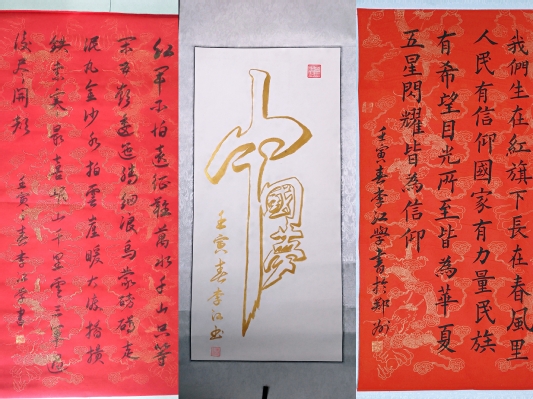 紅軍不怕遠征難萬水千山只等
閑五嶺逶迤騰細浪烏蒙磅礴走
泥丸金沙水拍雲崖暖大渡橋橫
鐵索寒更喜岷山千里雪三軍過
後盡開顏
壬寅春李江學書
中國夢
壬寅春李江書
我們生在紅旗下長在春風里
人民有信仰國家有力量民族
有希望目光所至皆為華夏
五星閃耀皆為信仰
壬寅春李江學書於鄭州